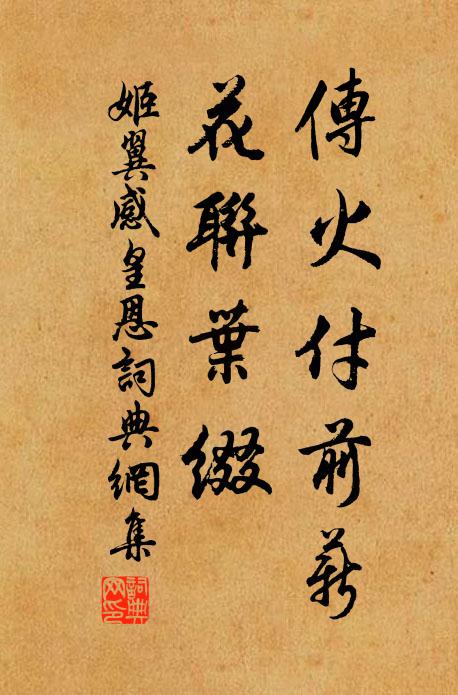 傳火付前薪
花聯葉綴
姬翼感皇恩詞典網集
詞典網印